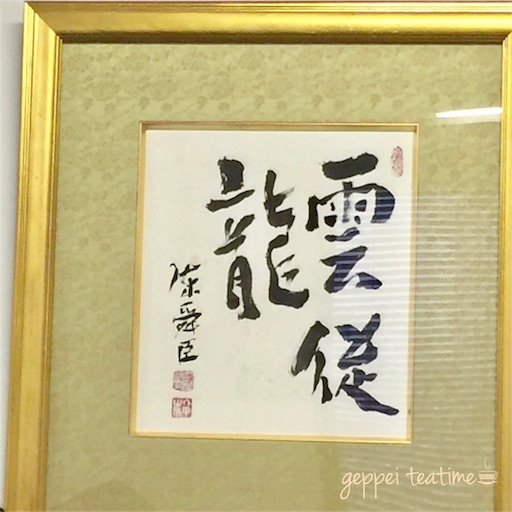 雲従
龍
陳舜臣
geppei teatime